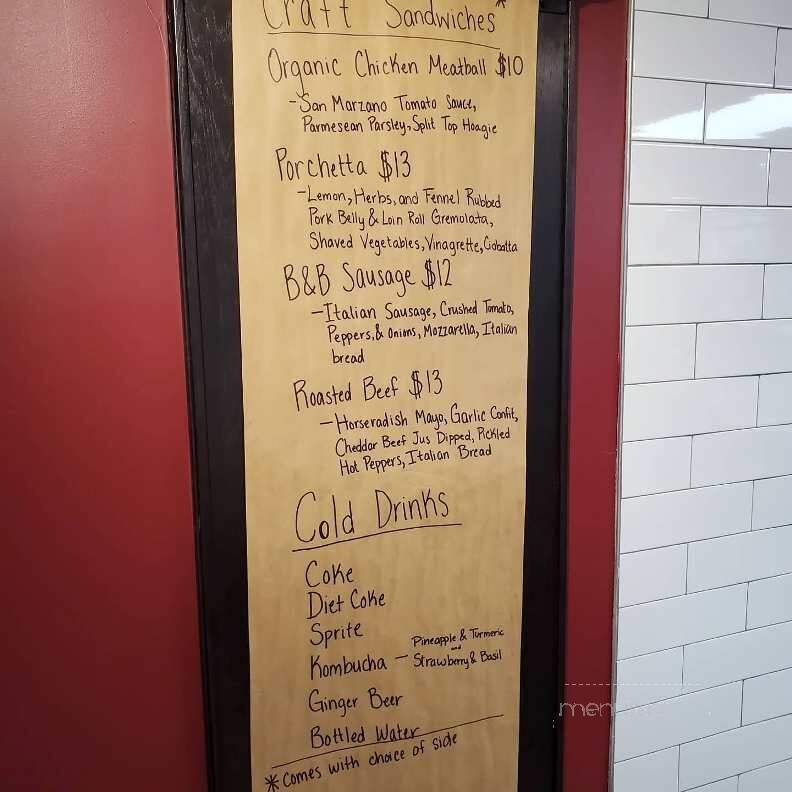 Craft Sandwiches*
Organic Chicken Meatball $10
-San Marzano Tomato Sauce,
Parmesean Parsley, Split Top Hoagie
Porchetta $13
-Lemon, Herbs, and Fennel Rubbed
Pork Belly & Loin Roll Gremolata,
Shaved Vegetables, Vinagrette, Ciobatta
B&B Sausage $12
-Italian Sausage, Crushed Tomato,
Peppers, & Onions, Mozzarella, Italian
bread
Roasted Beef $13
-Horseradish Mayo, Garlic Confit,
Cheddar Beef Jus Dipped, Pickled
Hot Peppers, Italian Bread
Cold Drinks
Coke
Diet Coke
Sprite
Kombucha - Pineapple & Turmeric
and
Strawberry & Basil
Ginger Beer
Bottled Water
*Comes with choice of side